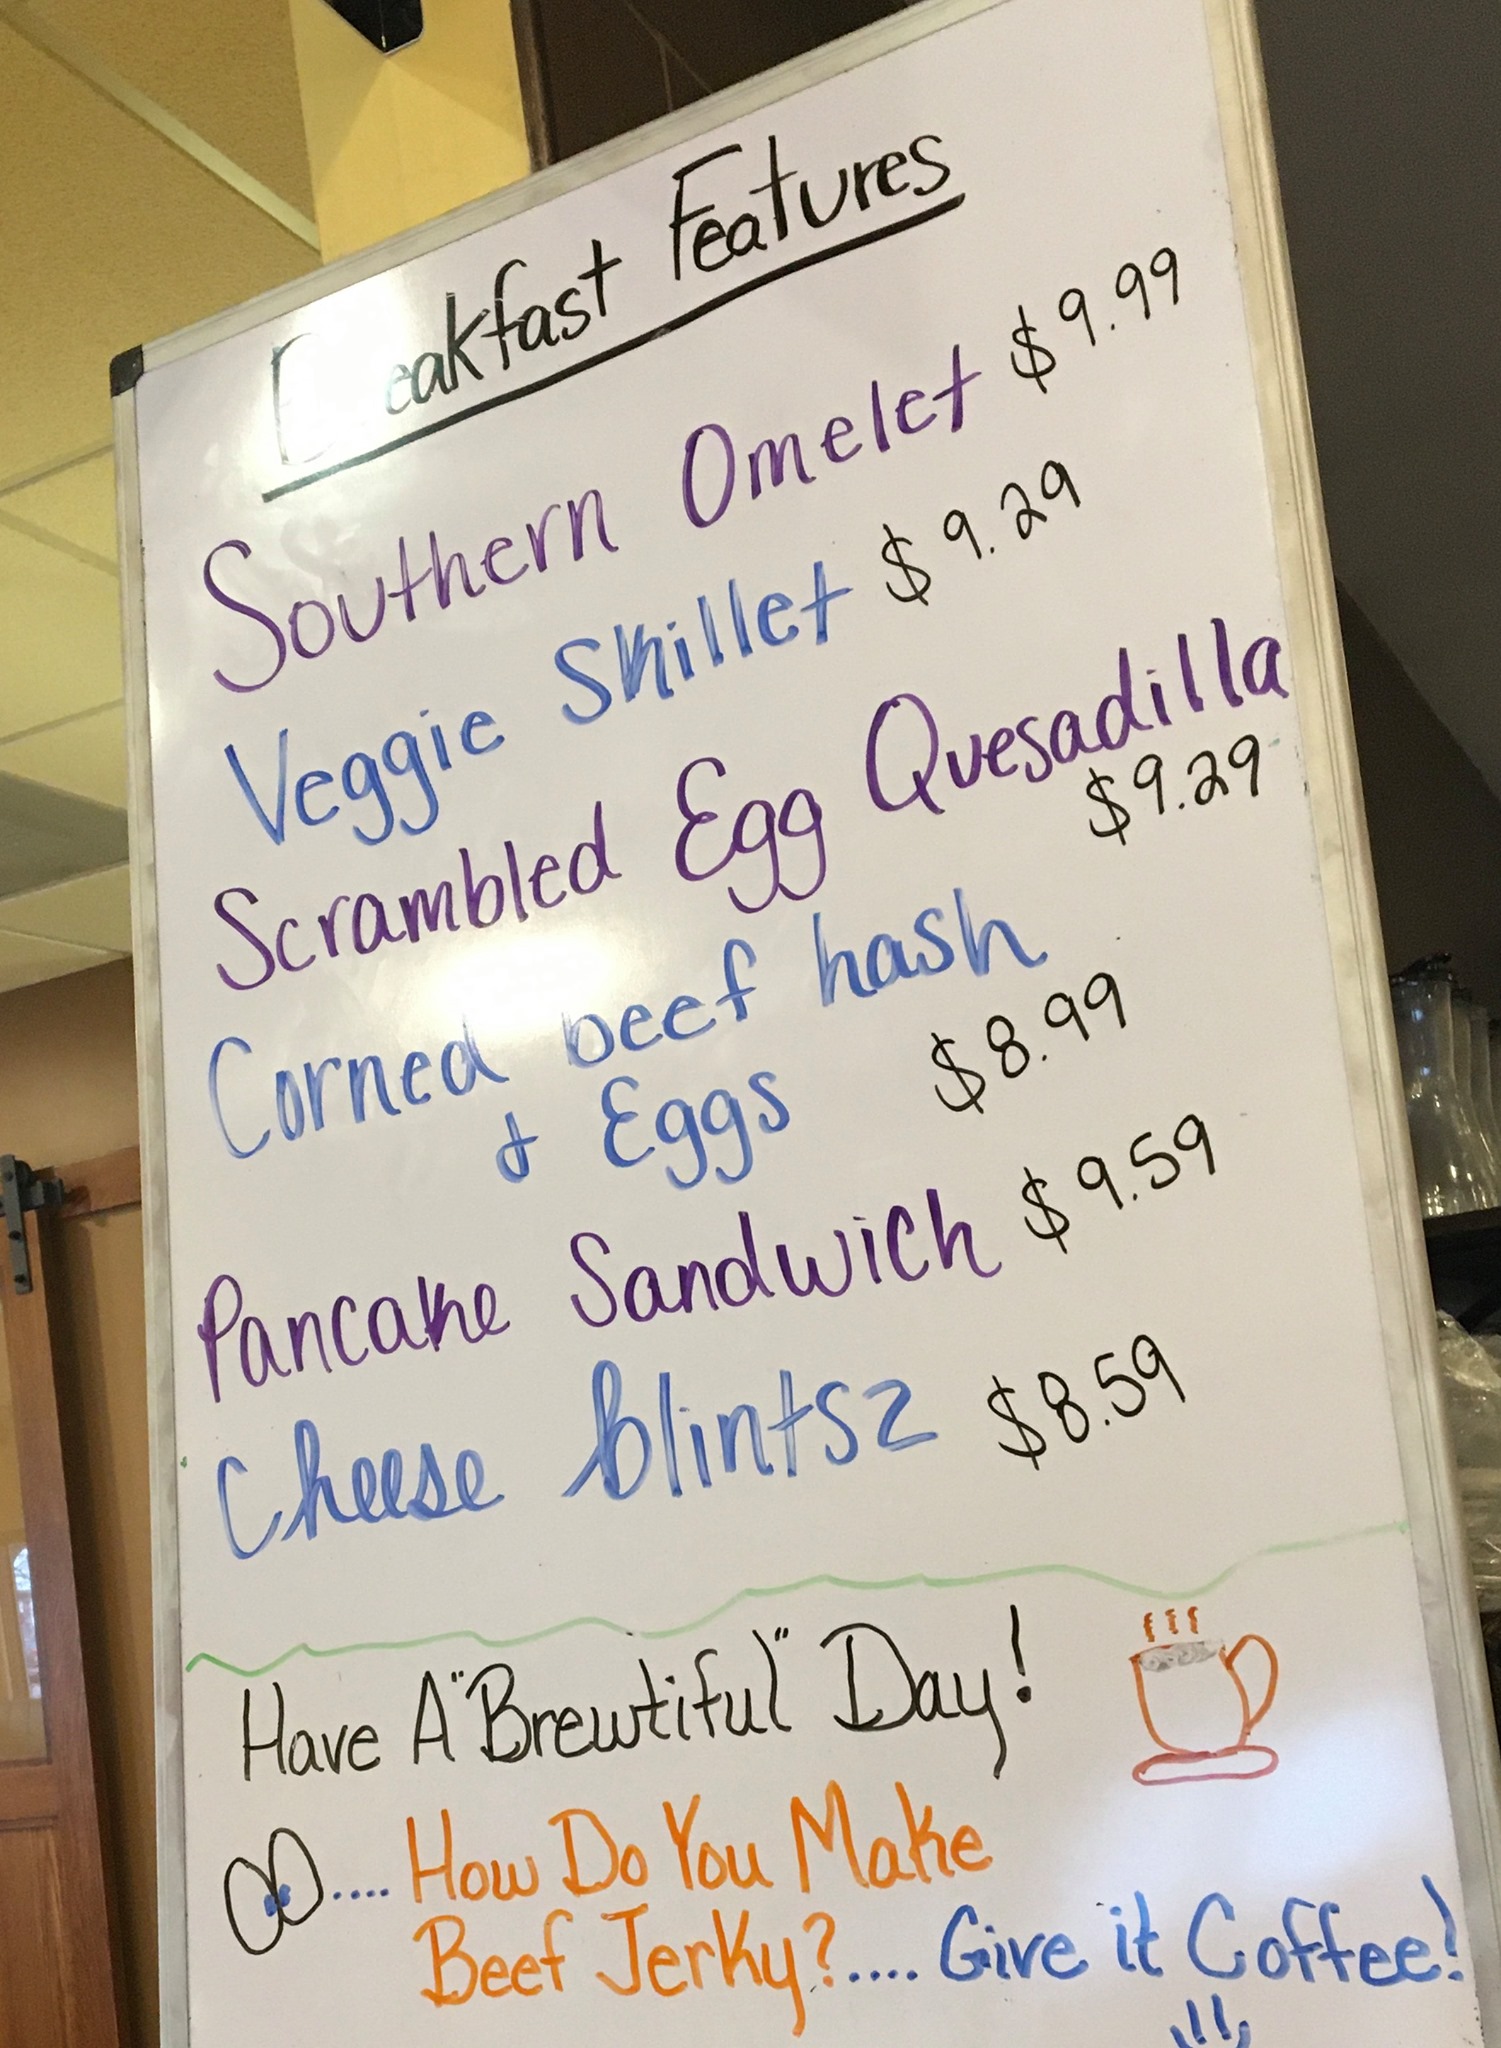 Breakfast Features
Southern Omelet $9.99
Veggie Skillet $9.29
Scrambled Egg Quesadilla
$9.29
Corned beef hash
& Eggs $8.99
Pancake Sandwich $9.59
Cheese blintsz $8.59
Have A "Brewtiful" Day!
.... How Do You Make
Beef Jerky?.... Give it Coffee!